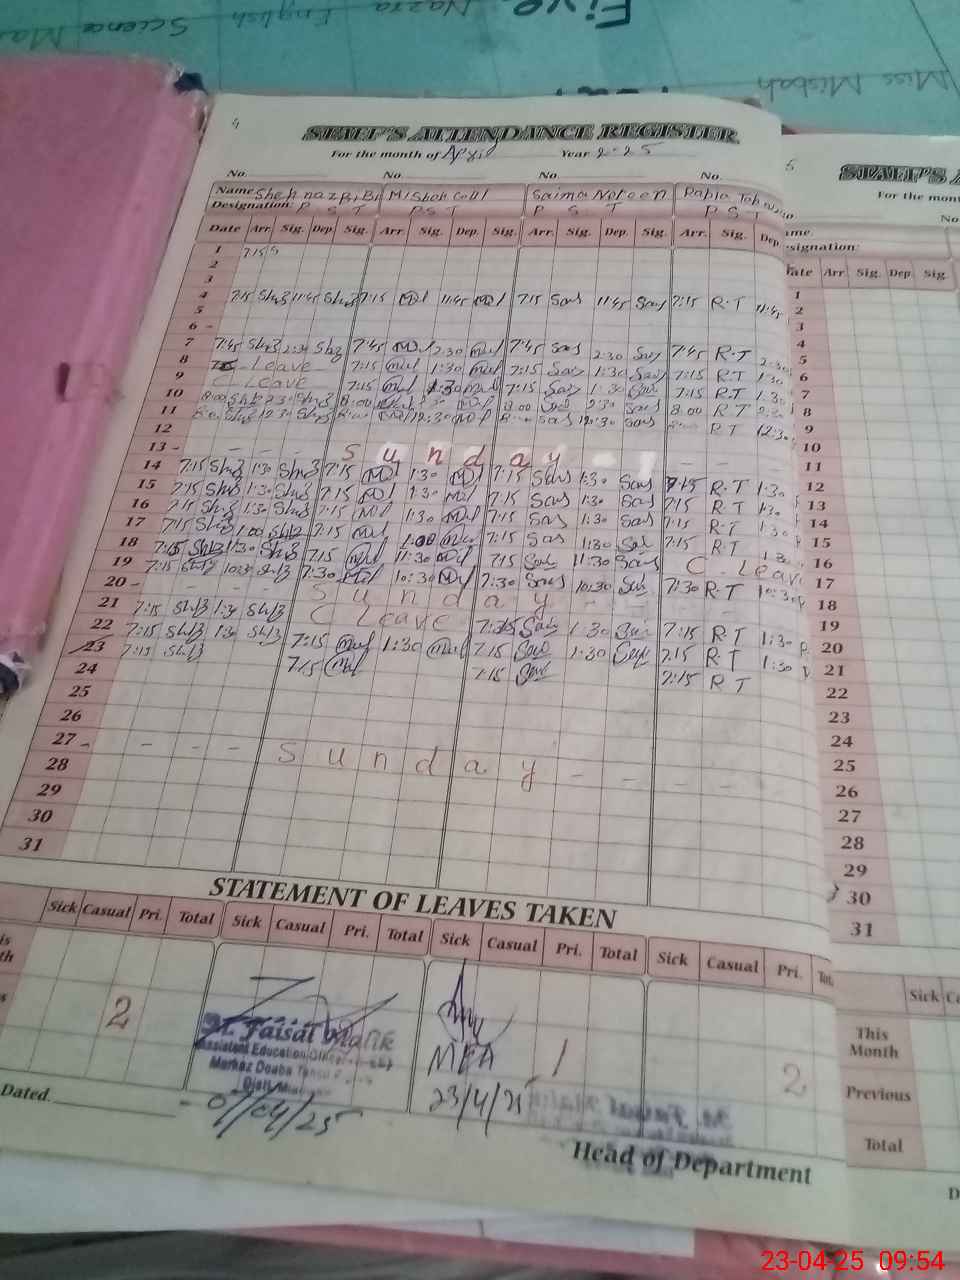 Science Ma
English
Nazra
Five
Miss Misbah
4
STAFF'S ATTENDANCE REGISTER
For the month of April Year 2025
No. No. No. No.
Name Shehnaz Bibi Misbah Gull Saima Noreen Rabia Tabassum
Designation: P S T P S T P. S. T P S T
Date Arr. Sig. Dep. Sig. Arr. Sig. Dep. Sig. Arr. Sig. Dep. Sig. Arr. Sig. Dep.
1 7:15 S
2
3
4 7:15 Shz 11:45 Shz 7:15 11:45 7:15 Sas 11:45 Sas 7:15 R.T 11:45
5
6 -
7 7:45 Shz 2:30 Shz 7:45 2:30 7:45 Sas 2:30 Sas 7:45 R.T 2:30
8 C Leave 7:15 1:30 7:15 Sas 1:30 Sas 7:15 R.T 1:30
9 C Leave 7:15 1:30 7:15 Sas 1:30 7:15 R.T 1:30
10 8:00 Shz 2:30 Shz 8:00 2:30 8:00 Sas 2:30 Sas 8:00 R T 2:30
11 8:00 Shz 12:30 Shz 8:00 12:30 8:00 Sas 12:30 Sas 8:00 R T 12:30
12
13 - - - - Sunday - - - -
14 7:15 Shz 1:30 Shz 7:15 1:30 7:15 Sas 1:30 Sas 7:15 R.T 1:30
15 7:15 Shz 1:30 Shz 7:15 1:30 7:15 Sas 1:30 Sas 7:15 R.T 1:30
16 7:15 Shz 1:30 Shz 7:15 1:30 7:15 Sas 1:30 Sas 7:15 R.T 1:30
17 7:15 Shz 1:00 Shz 7:15 1:00 7:15 Sas 1:30 Sas 7:15 R.T 1:30
18 7:15 Shz 11:30 Shz 7:15 11:30 7:15 Sas 11:30 Sas C - Leave
19 7:15 Shz 10:30 Shz 7:30 10:30 7:30 Sas 10:30 Sas 7:30 R.T 10:30
20 - Sunday - - -
21 7:15 Shz 1:30 Shz C Leave 7:15 Sas 1:30 Sas 7:15 R.T 1:30
22 7:15 Shz 1:30 Shz 7:15 1:30 7:15 Sas 1:30 Sas 7:15 R.T 1:30
23 7:15 Shz 7:15 7:15 Sas 7:15 R T
24
25
26
27 - - - - Sunday - - - -
28
29
30
31
STATEMENT OF LEAVES TAKEN
Sick Casual Pri. Total Sick Casual Pri. Total Sick Casual Pri. Total Sick Casual Pri.
2 1 2
M. Faisal Malik
Assistant Education Officer
Markaz Doaba
MEA
23/4/25
Dated.
07/04/25
Head of Department
5
STAFF'S A
For the mont
No
Name
Designation:
Date Arr. Sig. Dep. Sig.
1
2
3
4
5
6
7
8
9
10
11
12
13
14
15
16
17
18
19
20
21
22
23
24
25
26
27
28
29
30
31
Sick
This Month
Previous
Total
D
23-04-25 09:54